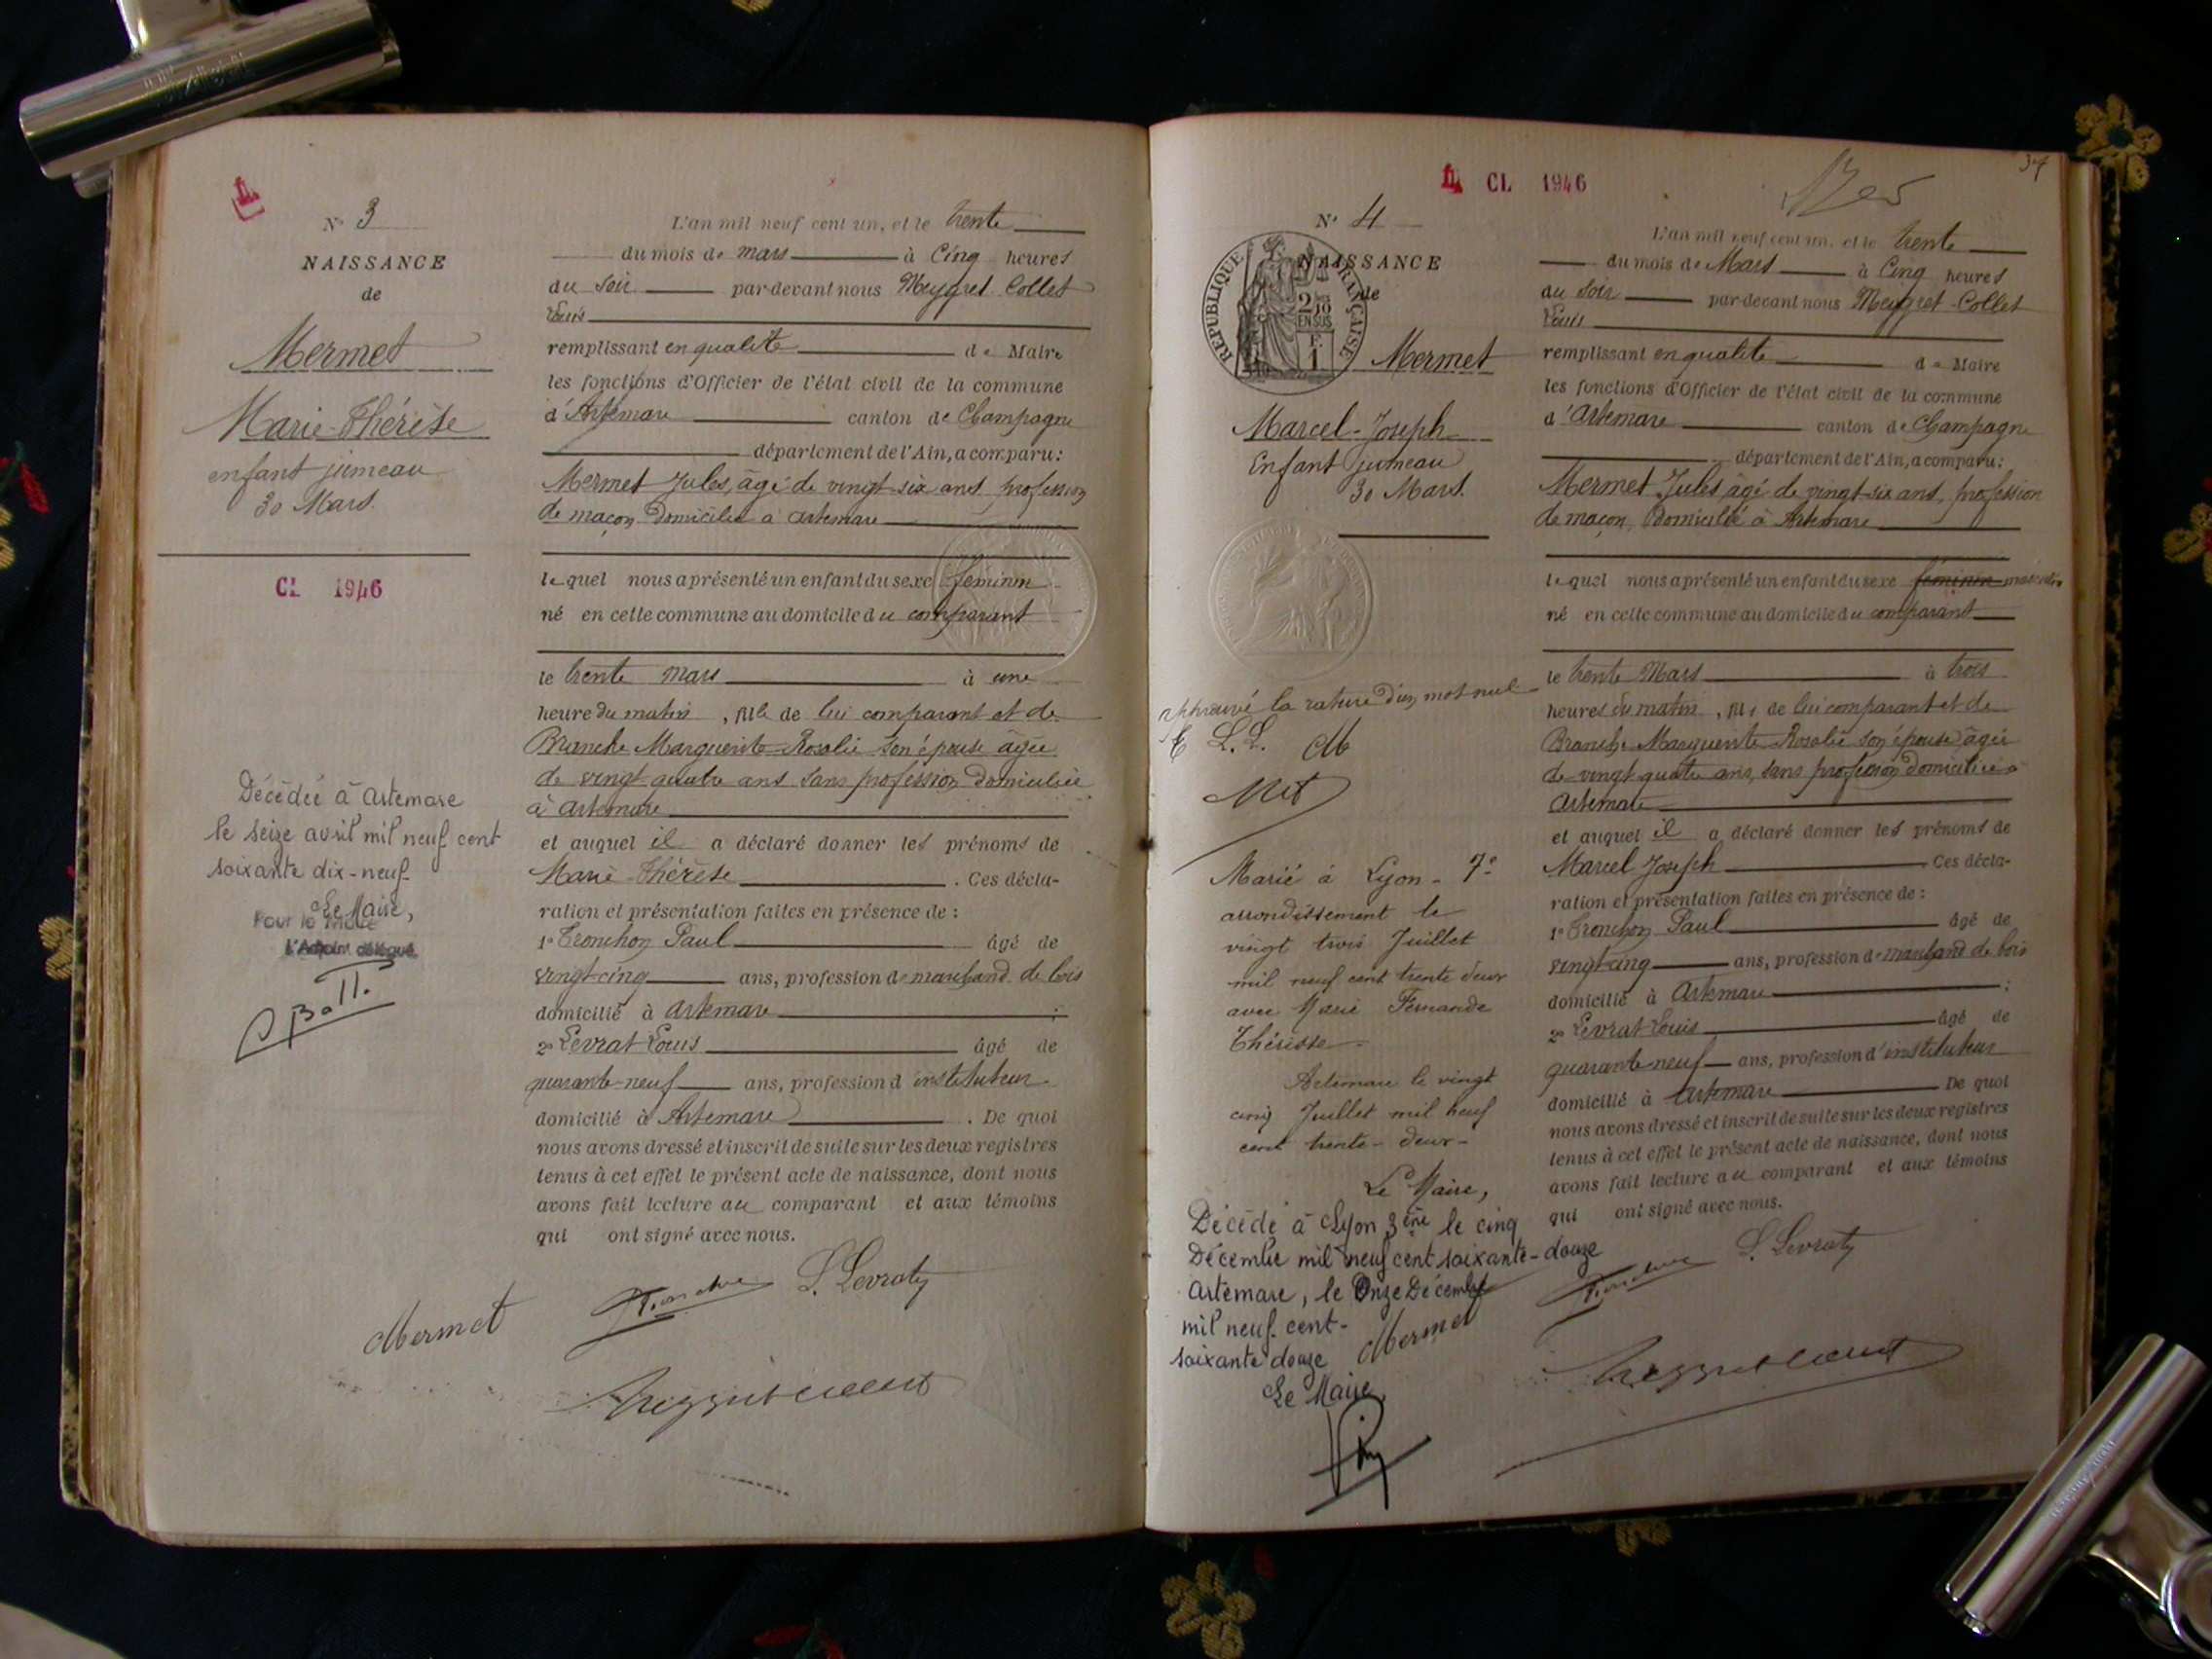 N° 3
NAISSANCE
de
Mermet
Marie-Thérèse
enfant jumeau
30 Mars.
CL 1946
Décédée à Artemare
le seize avril mil neuf cent
soixante dix-neuf
Le Maire,
Pour le Maire
L'Adjoint délégué
L'an mil neuf cent un, et le trente
du mois de mars à Cinq heures
du soir par-devant nous Meygret-Collet
Louis
remplissant en qualité de Maire
les fonctions d'Officier de l'état civil de la commune
d'Artemare canton de Champagne
département de l'Ain, a comparu:
Mermet Jules, âgé de vingt-six ans, profession
de maçon domicilié à Artemare
lequel nous a présenté un enfant du sexe féminin
né en cette commune au domicile du comparant
le trente mars à une
heure du matin, fille de lui comparant et de
Branche Marguerite-Rosalie son épouse âgée
de vingt quatre ans sans profession domiciliée
à Artemare
et auquel il a déclaré donner les prénoms de
Marie-Thérèse. Ces décla-
ration et présentation faites en présence de :
1° Tronchon Paul âgé de
vingt-cinq ans, profession de marchand de bois
domicilié à Artemare ;
2° Levrat Louis âgé de
quarante-neuf ans, profession d instituteur
domicilié à Artemare. De quoi
nous avons dressé et inscrit de suite sur les deux registres
tenus à cet effet le présent acte de naissance, dont nous
avons fait lecture au comparant et aux témoins
qui ont signé avec nous.
Mermet Tronchon L. Levrat
CL 1946
37
N° 4
NAISSANCE
de
REPUBLIQUE FRANÇAISE
2/10 EN SUS
F. 1
Mermet
Marcel-Joseph
Enfant jumeau
30 Mars.
approuvé la rature d'un mot nul
L.L.
Marié à Lyon - 7e
arrondissement le
vingt trois Juillet
mil neuf cent trente deux
avec Marie Fernande
Thérisse.
Artemare le vingt
cinq Juillet mil neuf
cent trente-deux-
Le Maire,
Décédé à Lyon 3ème le cinq
Décembre mil neuf cent soixante-douze
Artemare, le Onze Décembre
mil neuf cent-
soixante douze
Le Maire,
L'an mil neuf cent un, et le trente
du mois de Mars à Cinq heures
du soir par-devant nous Meygret-Collet
Louis
remplissant en qualité de Maire
les fonctions d'Officier de l'état civil de la commune
d'Artemare canton de Champagne
département de l'Ain, a comparu:
Mermet Jules, âgé de vingt-six ans, profession
de maçon, domicilié à Artemare
lequel nous a présenté un enfant du sexe féminin masculin
né en cette commune au domicile du comparant
le trente Mars à trois
heures du matin, fils de lui comparant et de
Branche Marguerite-Rosalie son épouse âgée
de vingt quatre ans, sans profession domiciliée à
Artemare
et auquel il a déclaré donner les prénoms de
Marcel Joseph Ces décla-
ration et présentation faites en présence de :
1° Tronchon Paul âgé de
vingt-cinq ans, profession de marchand de bois
domicilié à Artemare ;
2° Levrat Louis âgé de
quarante-neuf ans, profession d'instituteur
domicilié à Artemare De quoi
nous avons dressé et inscrit de suite sur les deux registres
tenus à cet effet le présent acte de naissance, dont nous
avons fait lecture au comparant et aux témoins
qui ont signé avec nous.
Mermet Tronchon L. Levrat